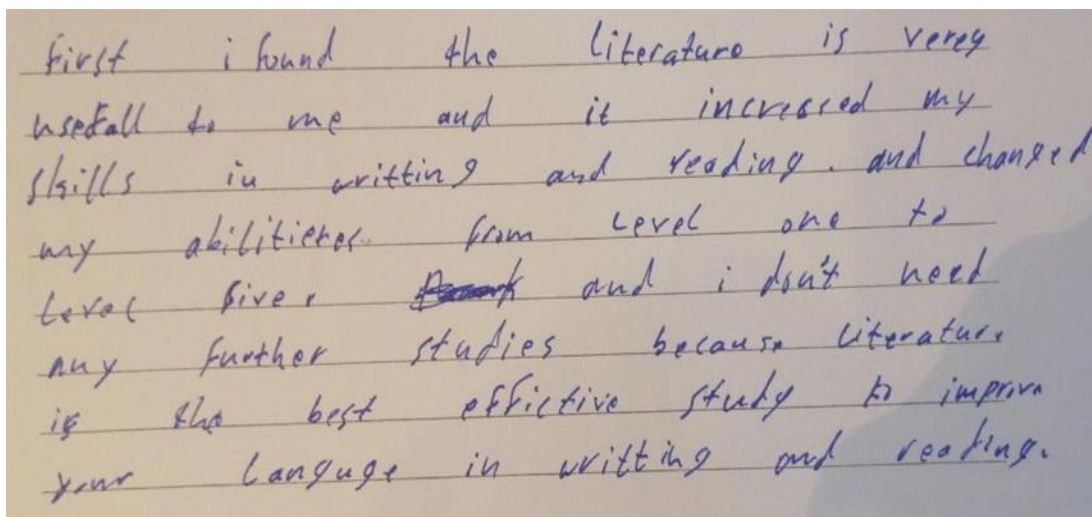 first i found the literature is verey
usefall to me and it incressed my
skills in writting and reading. and changed
my abilities from level one to
level five. and i don't need
any further studies because literature
is the best effictive study to improve
your languge in writting and reading.